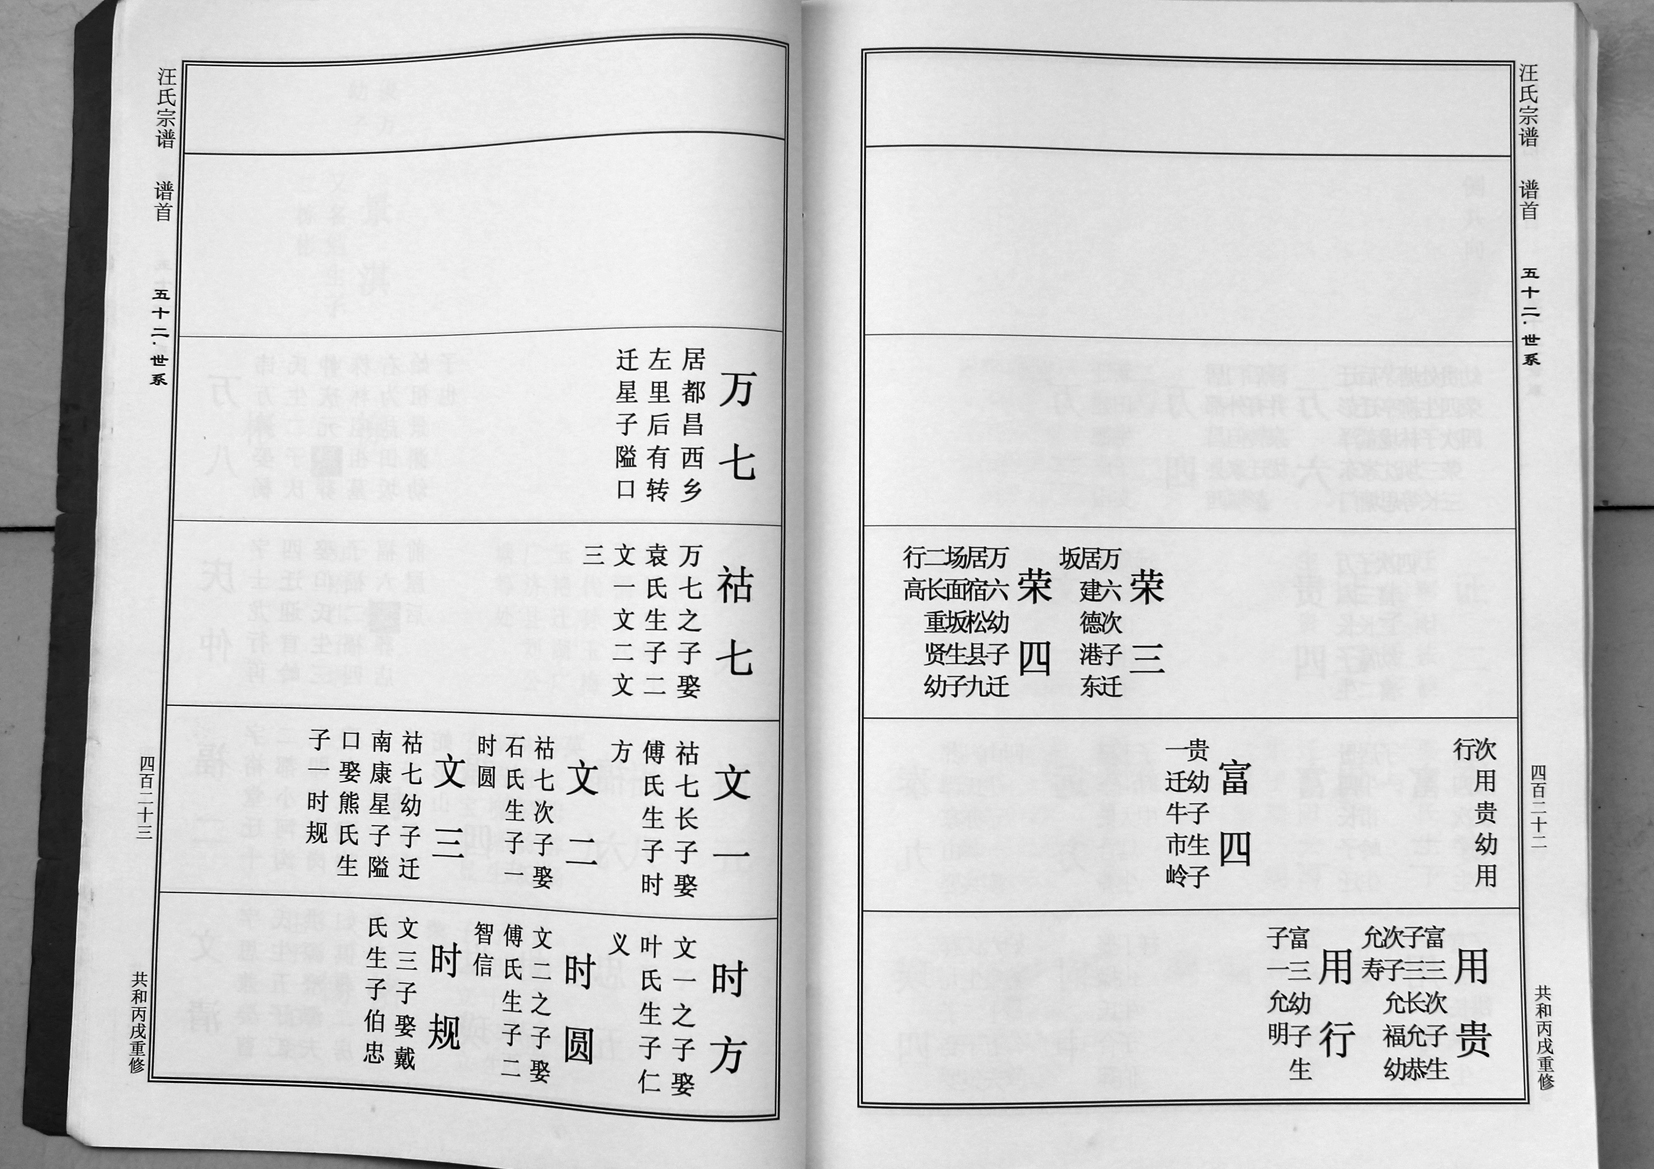 汪氏宗谱 谱首 五十二·世系 四百二十二 共和丙戌重修
荣三
万六次子迁
居建德港东
坂
荣四
万六幼子迁
居宿松县九
场面坂生子
二长重贤幼
行高
次用贵幼用
行
富四
贵幼子生子
一迁牛市岭
用贵
富三次子生
子三长允恭
次子允福幼
允寿
用行
富三幼子生
子一允明
万七
居都昌西乡
左里后有转
迁星子隘口
祜七
万七之子娶
袁氏生子二
文一文二文
三
文一
祜七长子娶
傅氏生子时
方
文二
祜七次子娶
石氏生子一
时圆
文三
祜七幼子迁
南康星子隘
口娶熊氏生
子时规
时方
文一之子娶
叶氏生子仁
义
时圆
文二之子娶
傅氏生子二
智信
时规
文三子娶戴
氏生子伯忠
汪氏宗谱 谱首 五十二·世系 四百二十三 共和丙戌重修